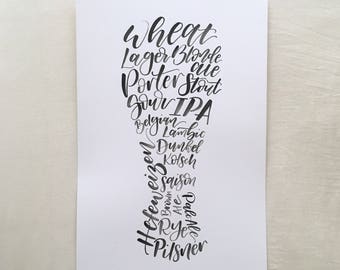 Wheat
Lager Blonde
ale
Porter Stout
Sour IPA
Belgian
Lambic
Dunkel
Kolsch
Hefeweizen
Saison
Brown
Ale
Pale Ale
Rye
Pilsner